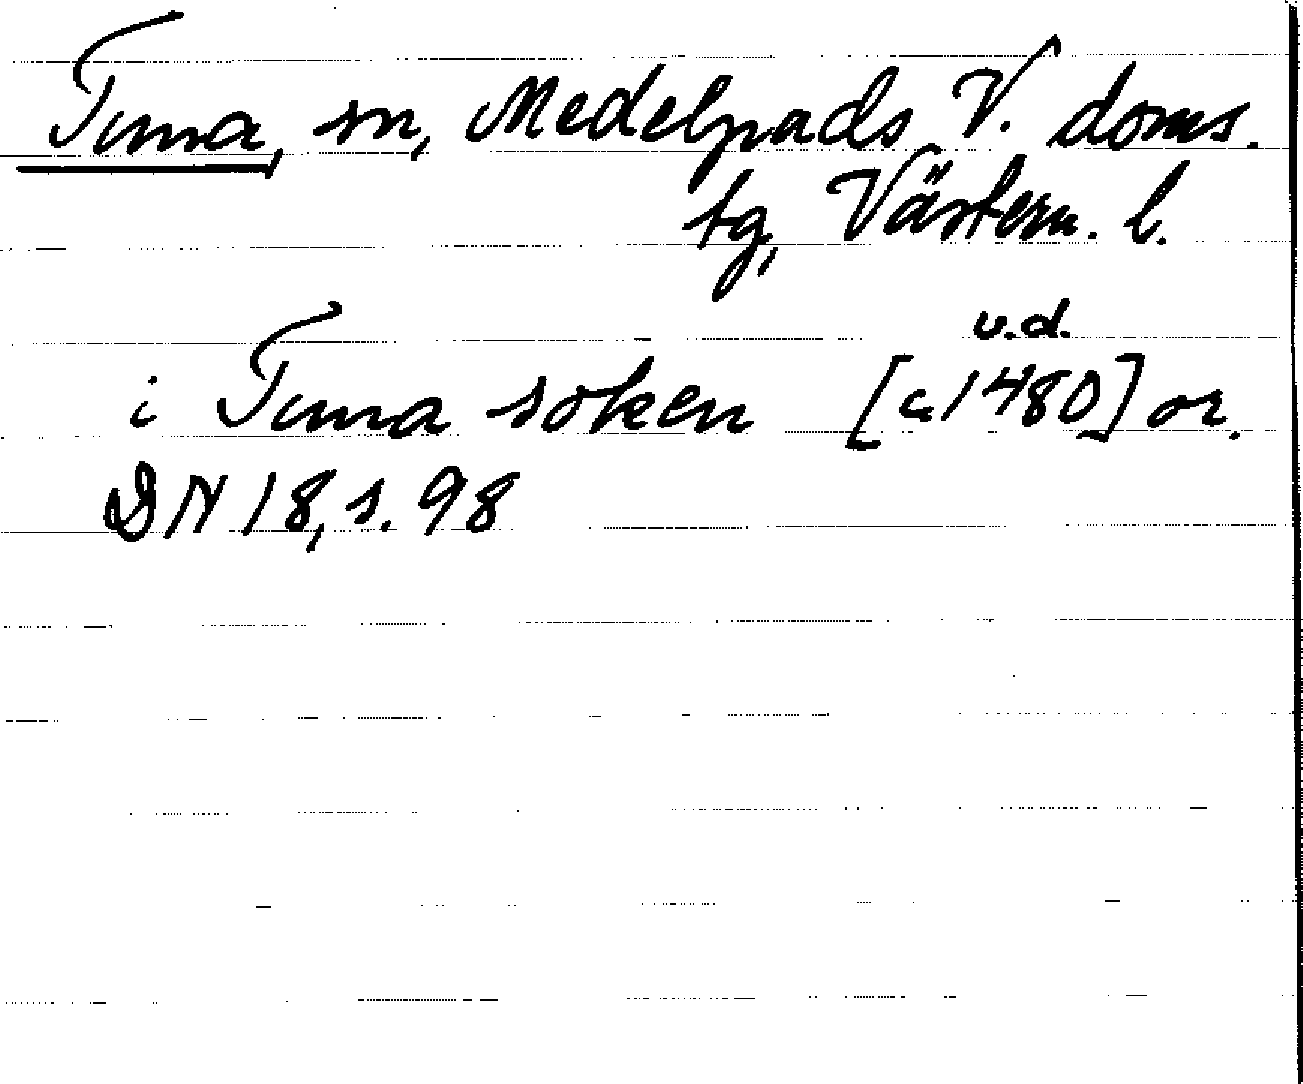 Tuna, sn, Medelpads V. doms.
tg, Västern. l.
u.d.
i Tuna soken [c. 1480] or.
DN 18, s. 98